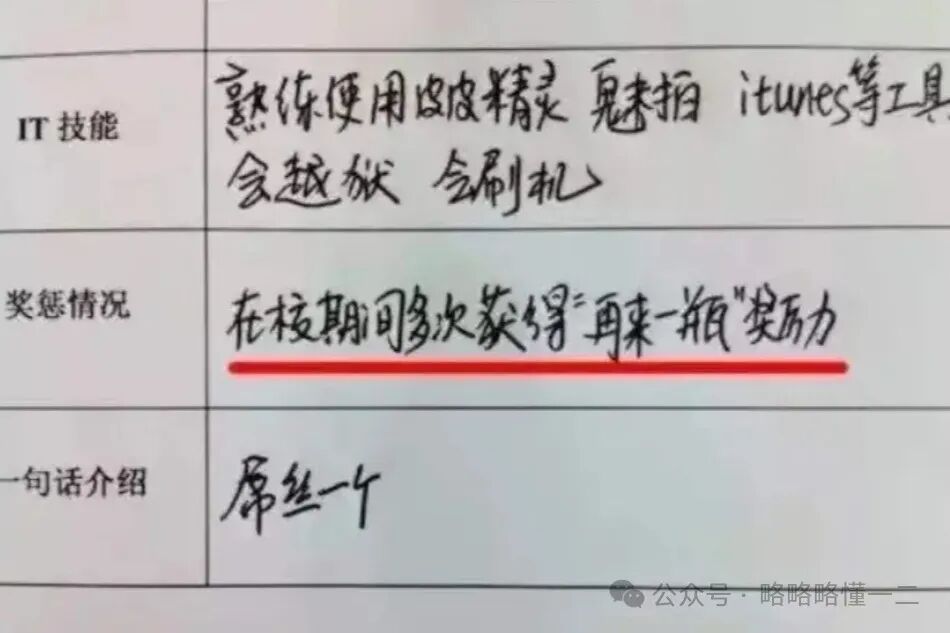 IT 技能
熟练使用皮皮精灵 魅拍 itunes等工具
会越狱 会刷机
奖惩情况
在校期间多次获得"再来一瓶"奖励
一句话介绍
屌丝一个
公众号·略略略懂一二